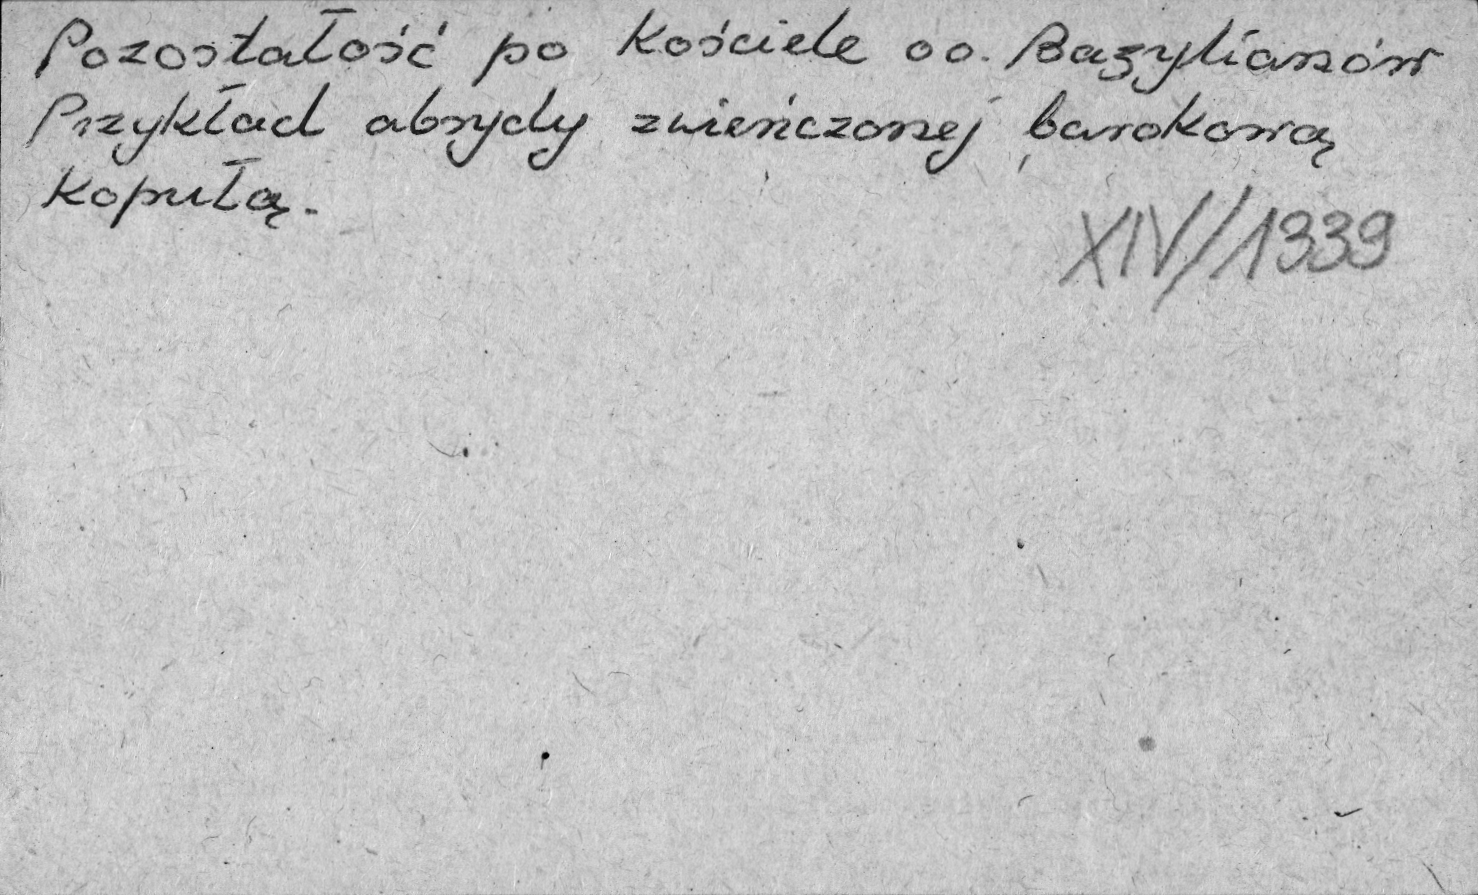 Pozostałość po Kościele oo. Bazylianów
Przykład absydy zwieńczonej barokową
Kopułą.
XIV/1339